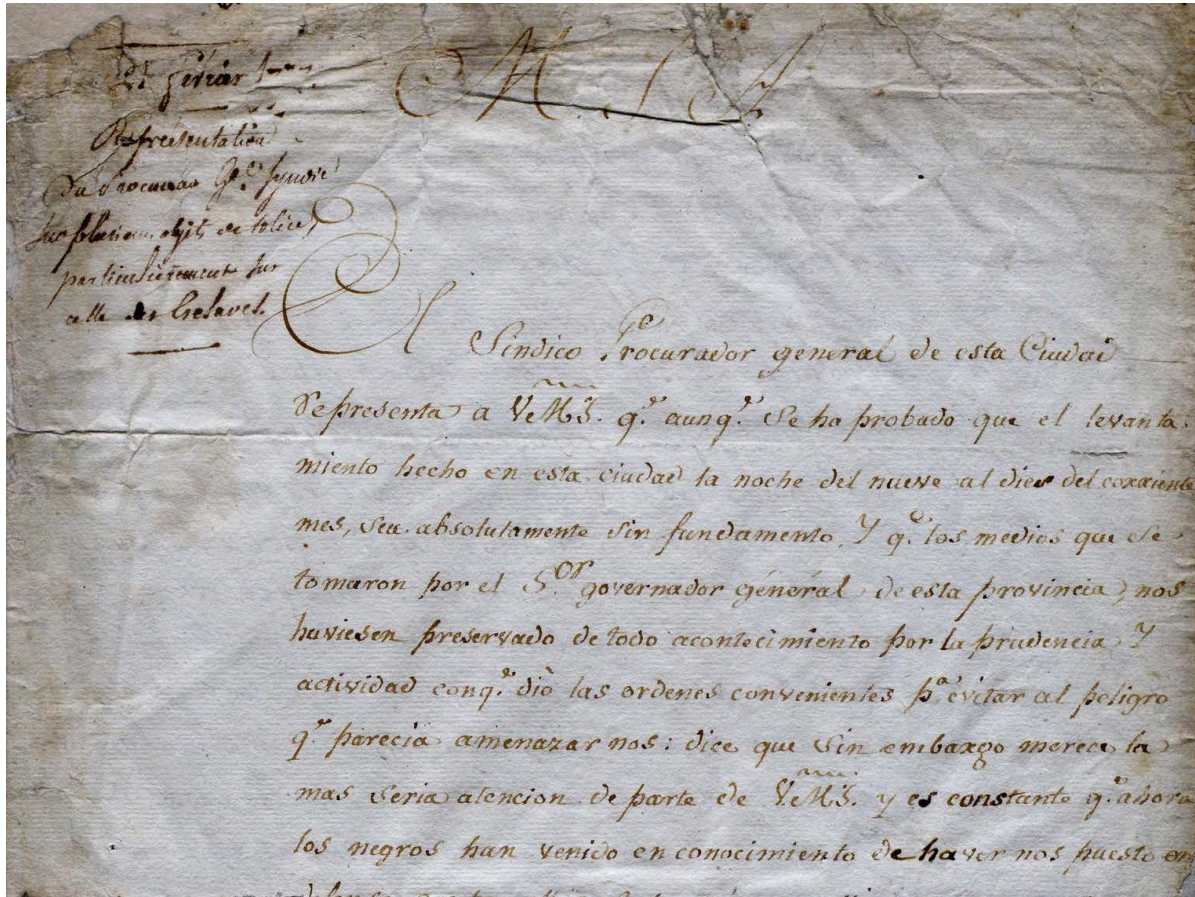 25 février
M. I. S.
Representation
Du Procureur Ge.l Syndic
sur plusieurs objets de Police,
particulièrement sur
celle des Esclaves.
El Sindico Procurador general de esta Ciudad
Representa a V.e M. I. q.e aunq.e Se ha probado que el levanta
miento hecho en esta ciudad la noche del nueve al dies del corriente
mes, sea absolutamente sin fundamento, Y q.e los medios que se
tomaron por el S.or governador géneral de esta provincia, nos
huviesen preservado de todo acontecimiento por la prudencia Y
actividad conq.e diò las ordenes convenientes p.a evitar al peligro
q.e parecia amenazar nos: dice que sin embargo merece la
mas seria atencion de parte de V.e M. I. y es constante q.e ahora
los negros han venido en conocimiento de haver nos puesto en